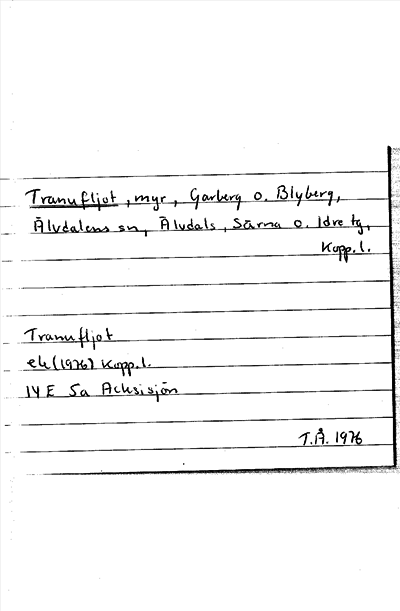 Tranufljot, myr, Garberg o. Blyberg,
Älvdalens sn, Älvdals, Särna o. Idre tg,
Kopp. l.
Tranufljot
ek (1976) Kopp. l.
14 E 5a Acksisjön
T.Å. 1976